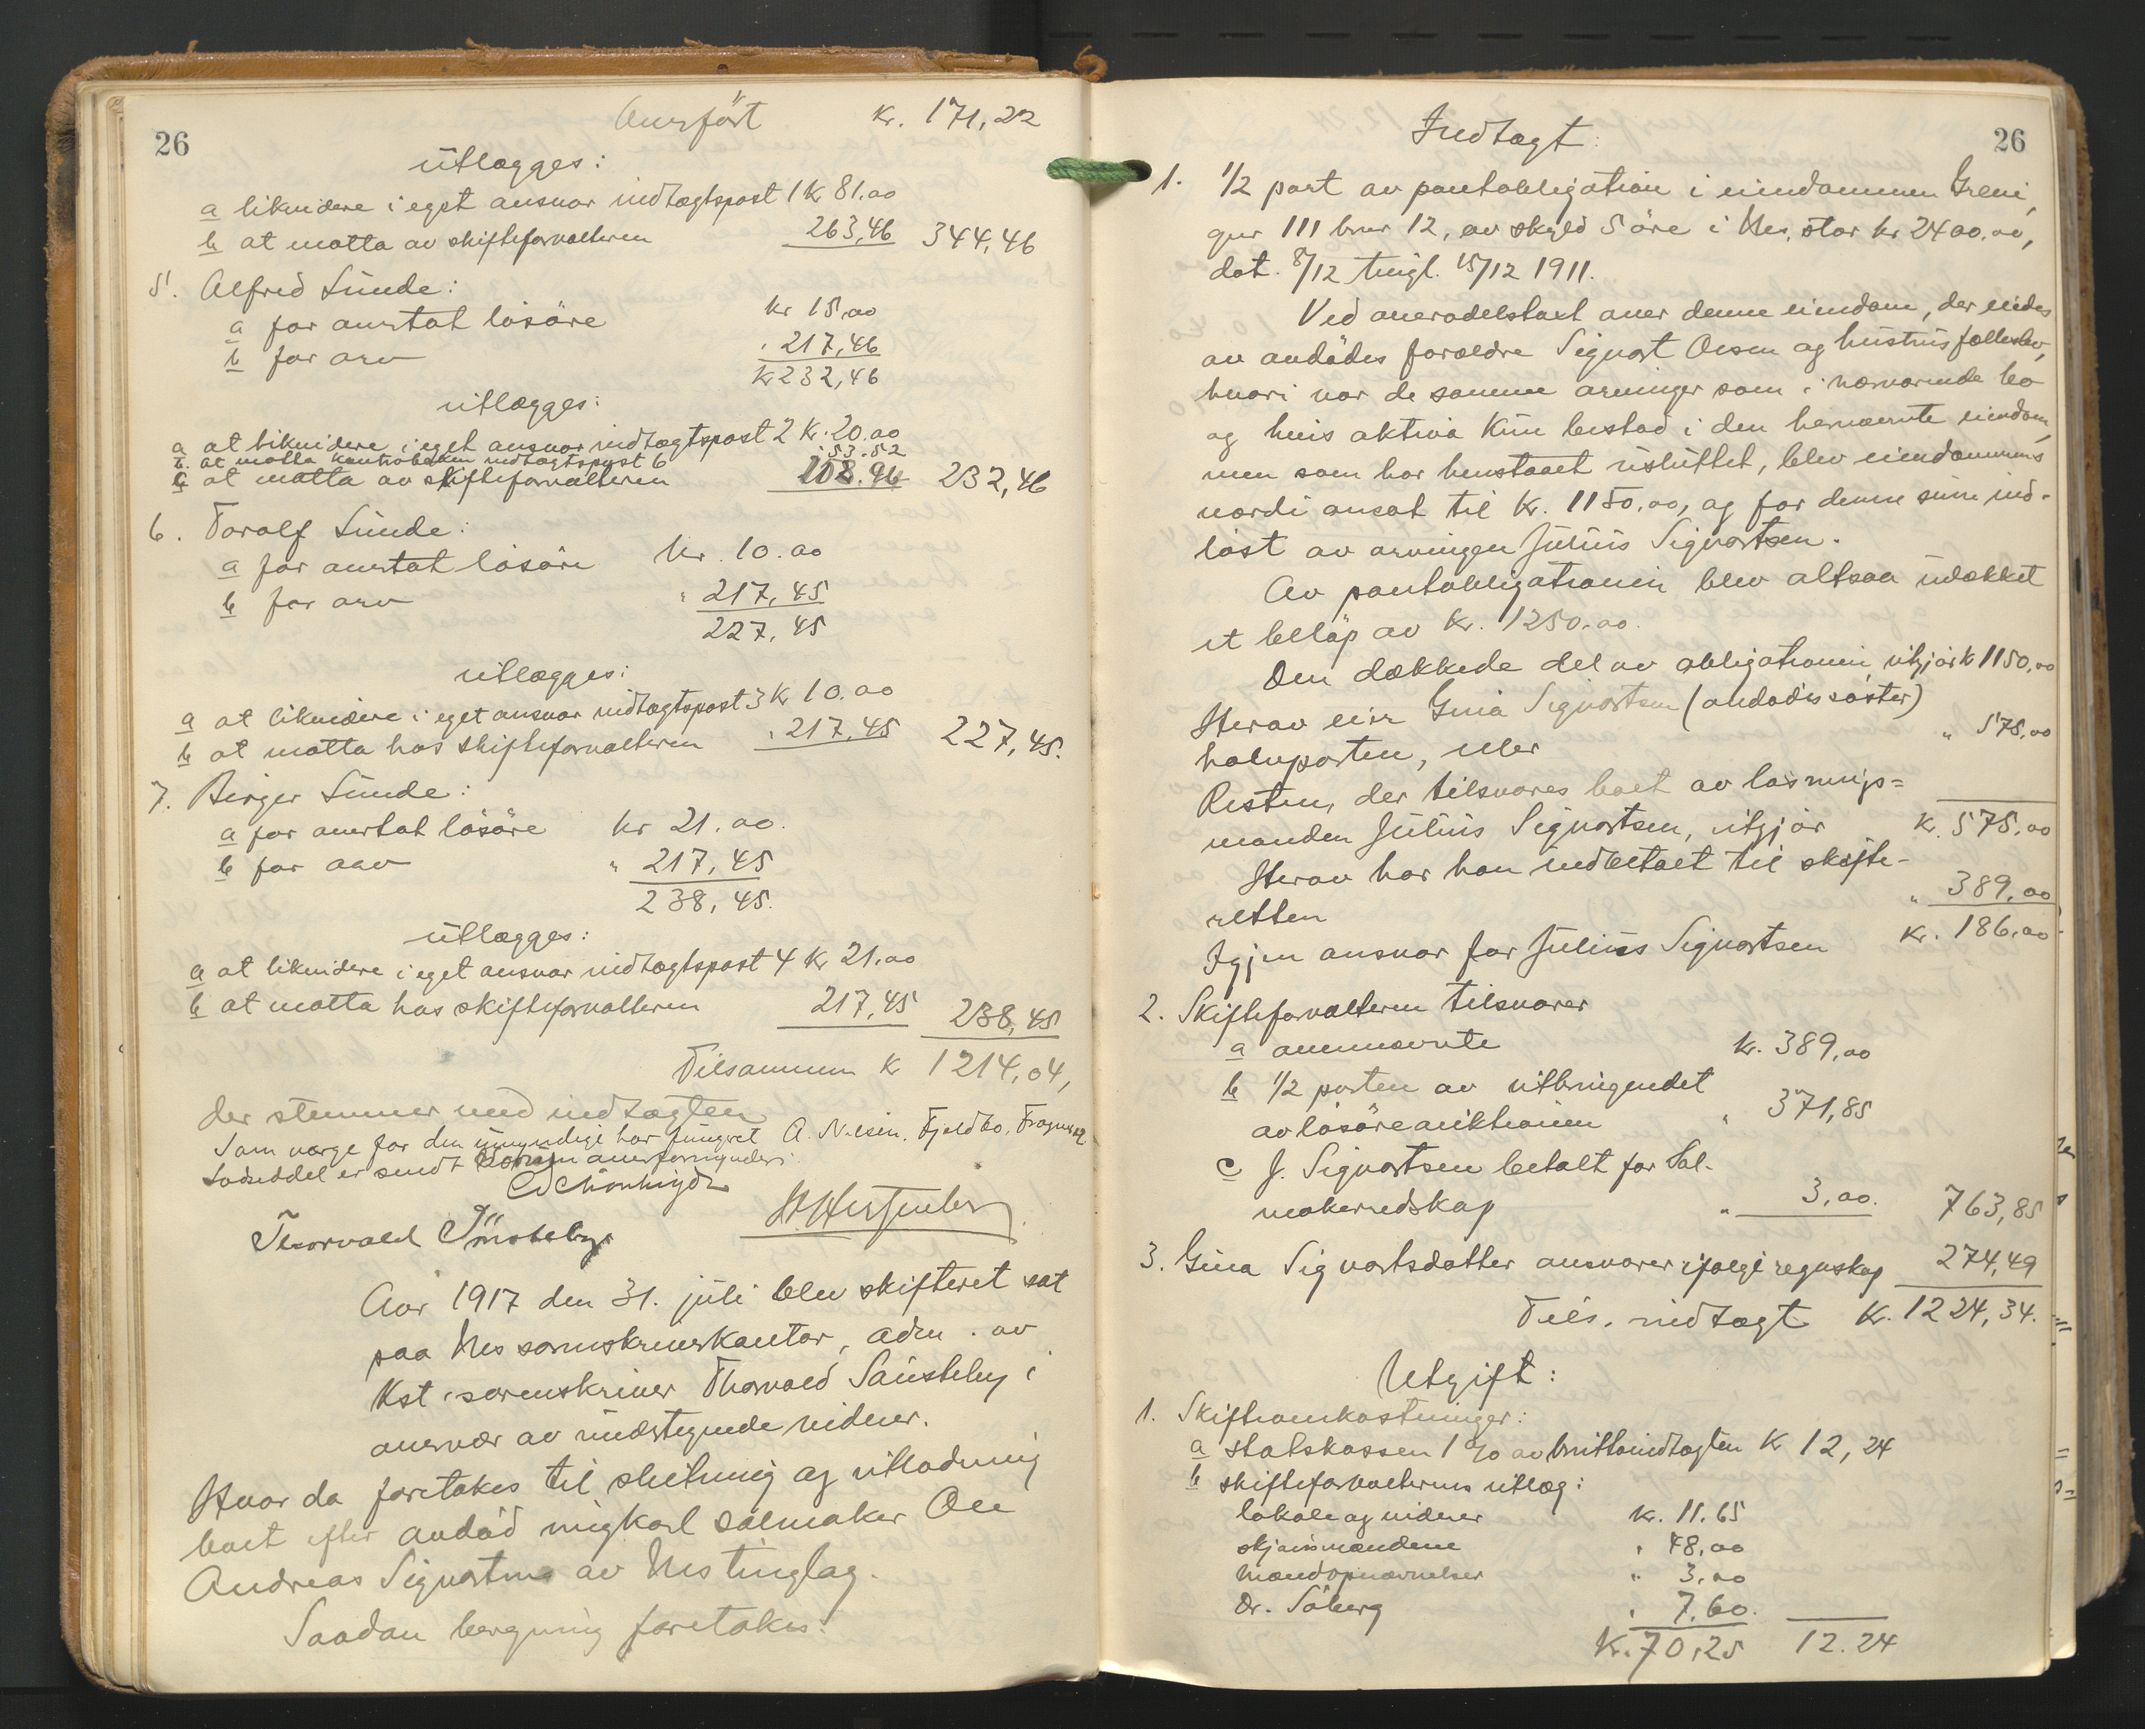 26
Overført kr. 171,22
utlægges:
a likvidere i eget ansvar indtægtspost 1 kr 81.00
b at motta av skifteforvalteren 263,46 344,46
5. Alfred Sunde:
a for overtat løsøre kr 15,00
b for arv " 217,46
kr 232,46
utlægges:
a at likvidere i eget ansvar indtægtspost 2 kr. 20.00
b. at motta kontrabøken indtægtspost 6 " 53.52
c at motta av skifteforvalteren 94 232,46
6. Toralf Sunde:
a for overtat løsøre kr. 10.00
b for arv " 217,45
227,45
utlægges:
a at likvidere i eget ansvar indtægtspost 3 kr 10.00
b at motta hos skifteforvalteren " 217,45 227,45.
7. Birger Sunde:
a for overtat løsøre kr 21.00.
b for arv " 217,45
238,45.
utlægges:
a at likvidere i eget ansvar indtægtspost 4 kr 21.00
b at motta hos skifteforvalteren 217,45 238,45
Tilsammen kr 1214,04,
der stemmer med indtægten
Som værge for den umyndige har fungeret A. Nilsen. Fjeldbo.
Lodseddel er sendt overformynderi
Thorvald
Aar 1917 den 31. juli blev skifteret sat
paa Nes sorenskriverkontor, adm. av
Kst. sorenskriver Thorvald i
overvær av undertegnede vidner.
Hvor da foretokes til slutning og utlodning
boet efter avdød ungkarl salmaker Ole
Andreas Sigvartsen av Nes tinglag.
Saadan beregning foretokes:
26
Indtægt:
1. 1/2 part av pantobligation i eiendommen Greni,
gnr 111 bnr 12, av skyld 5 øre i Nes, stor kr 2400.00,
dat. 8/12 tingl. 15/12 1911.
Ved overadelstaxt over denne eiendom, der eides
av avdødes forældre Sigvart Olsen og hustrus fællesbo,
hvori var de samme arvinger som i nærværende bo
og hvis aktiva kun bestod i den henævnte eiendom,
men som har henstaaet usluttet, blev eiendommens
værdi ansat til kr. 1150.00, og for denne sum ind-
løst av arvingen Julius Sigvartsen.
Av pantobligationen blev altsaa udækket
et beløp av kr. 1250.00.
Den dækkede del av obligationen utgjør kr 1150,00
Herav eier Gina Sigvartsen (avdødes søster)
halvparten, eller " 575,00
Resten, der tilsvares boet av løsnings-
manden Julius Sigvartsen, utgjør kr. 575,00
Herav har han indbetalt til skifte-
retten " 389,00
Igjen ansvar for Julius Sigvartsen kr. 186,00
2. Skifteforvalteren tilsvarer
a ovennævnte kr. 389,00
b 1/2 parten av utbringendet
av løsøreauktionen " 371,85
c J. Sigvartsen betalt for sal-
makerredskap " 3,00. 763,85
3. Gina Sigvartsdatter ansvarer ifølge regnskap 274,49
Tils. indtægt kr. 1224,34.
Utgift:
1. Skifteomkostninger:
a statskassen 1 % av bruttoindtægten kr 12,24
b skifteforvalterens utlæg:
lokale og vidner kr. 11.65
skjønsmændene " 48,00
mandsopnævnelser " 3,00
Dr. Søberg " 7.60.
kr. 70,25 12.24